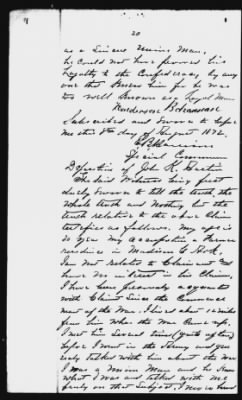 20
as a Sincere Union Man,
he could not have proved his
loyalty to the Confederacy, by any
one that knows him for he was
too well known as a loyal Man
Subscribed and Sworn to before
me this day of August 1872.
Special Commr
Deposition of John K.
The said Witness being first
duly Sworn to tell the truth the
whole truth and Nothing but the
truth relative to the above Claim
testifies as follows. My age is
years My occupation a Farmer
residence in Madison Co
I am Not related to Claimant and
have No interest in his Claim,
I have been personally acquainted
with Claimt Since the Commence
ment of the War. I lived about miles
from him when the War Came up.
I met him Several times
before I went in the Army and
talked with him about the war
I was a Union Man and he knew
what I was and talked with me
freely on that Subject. I